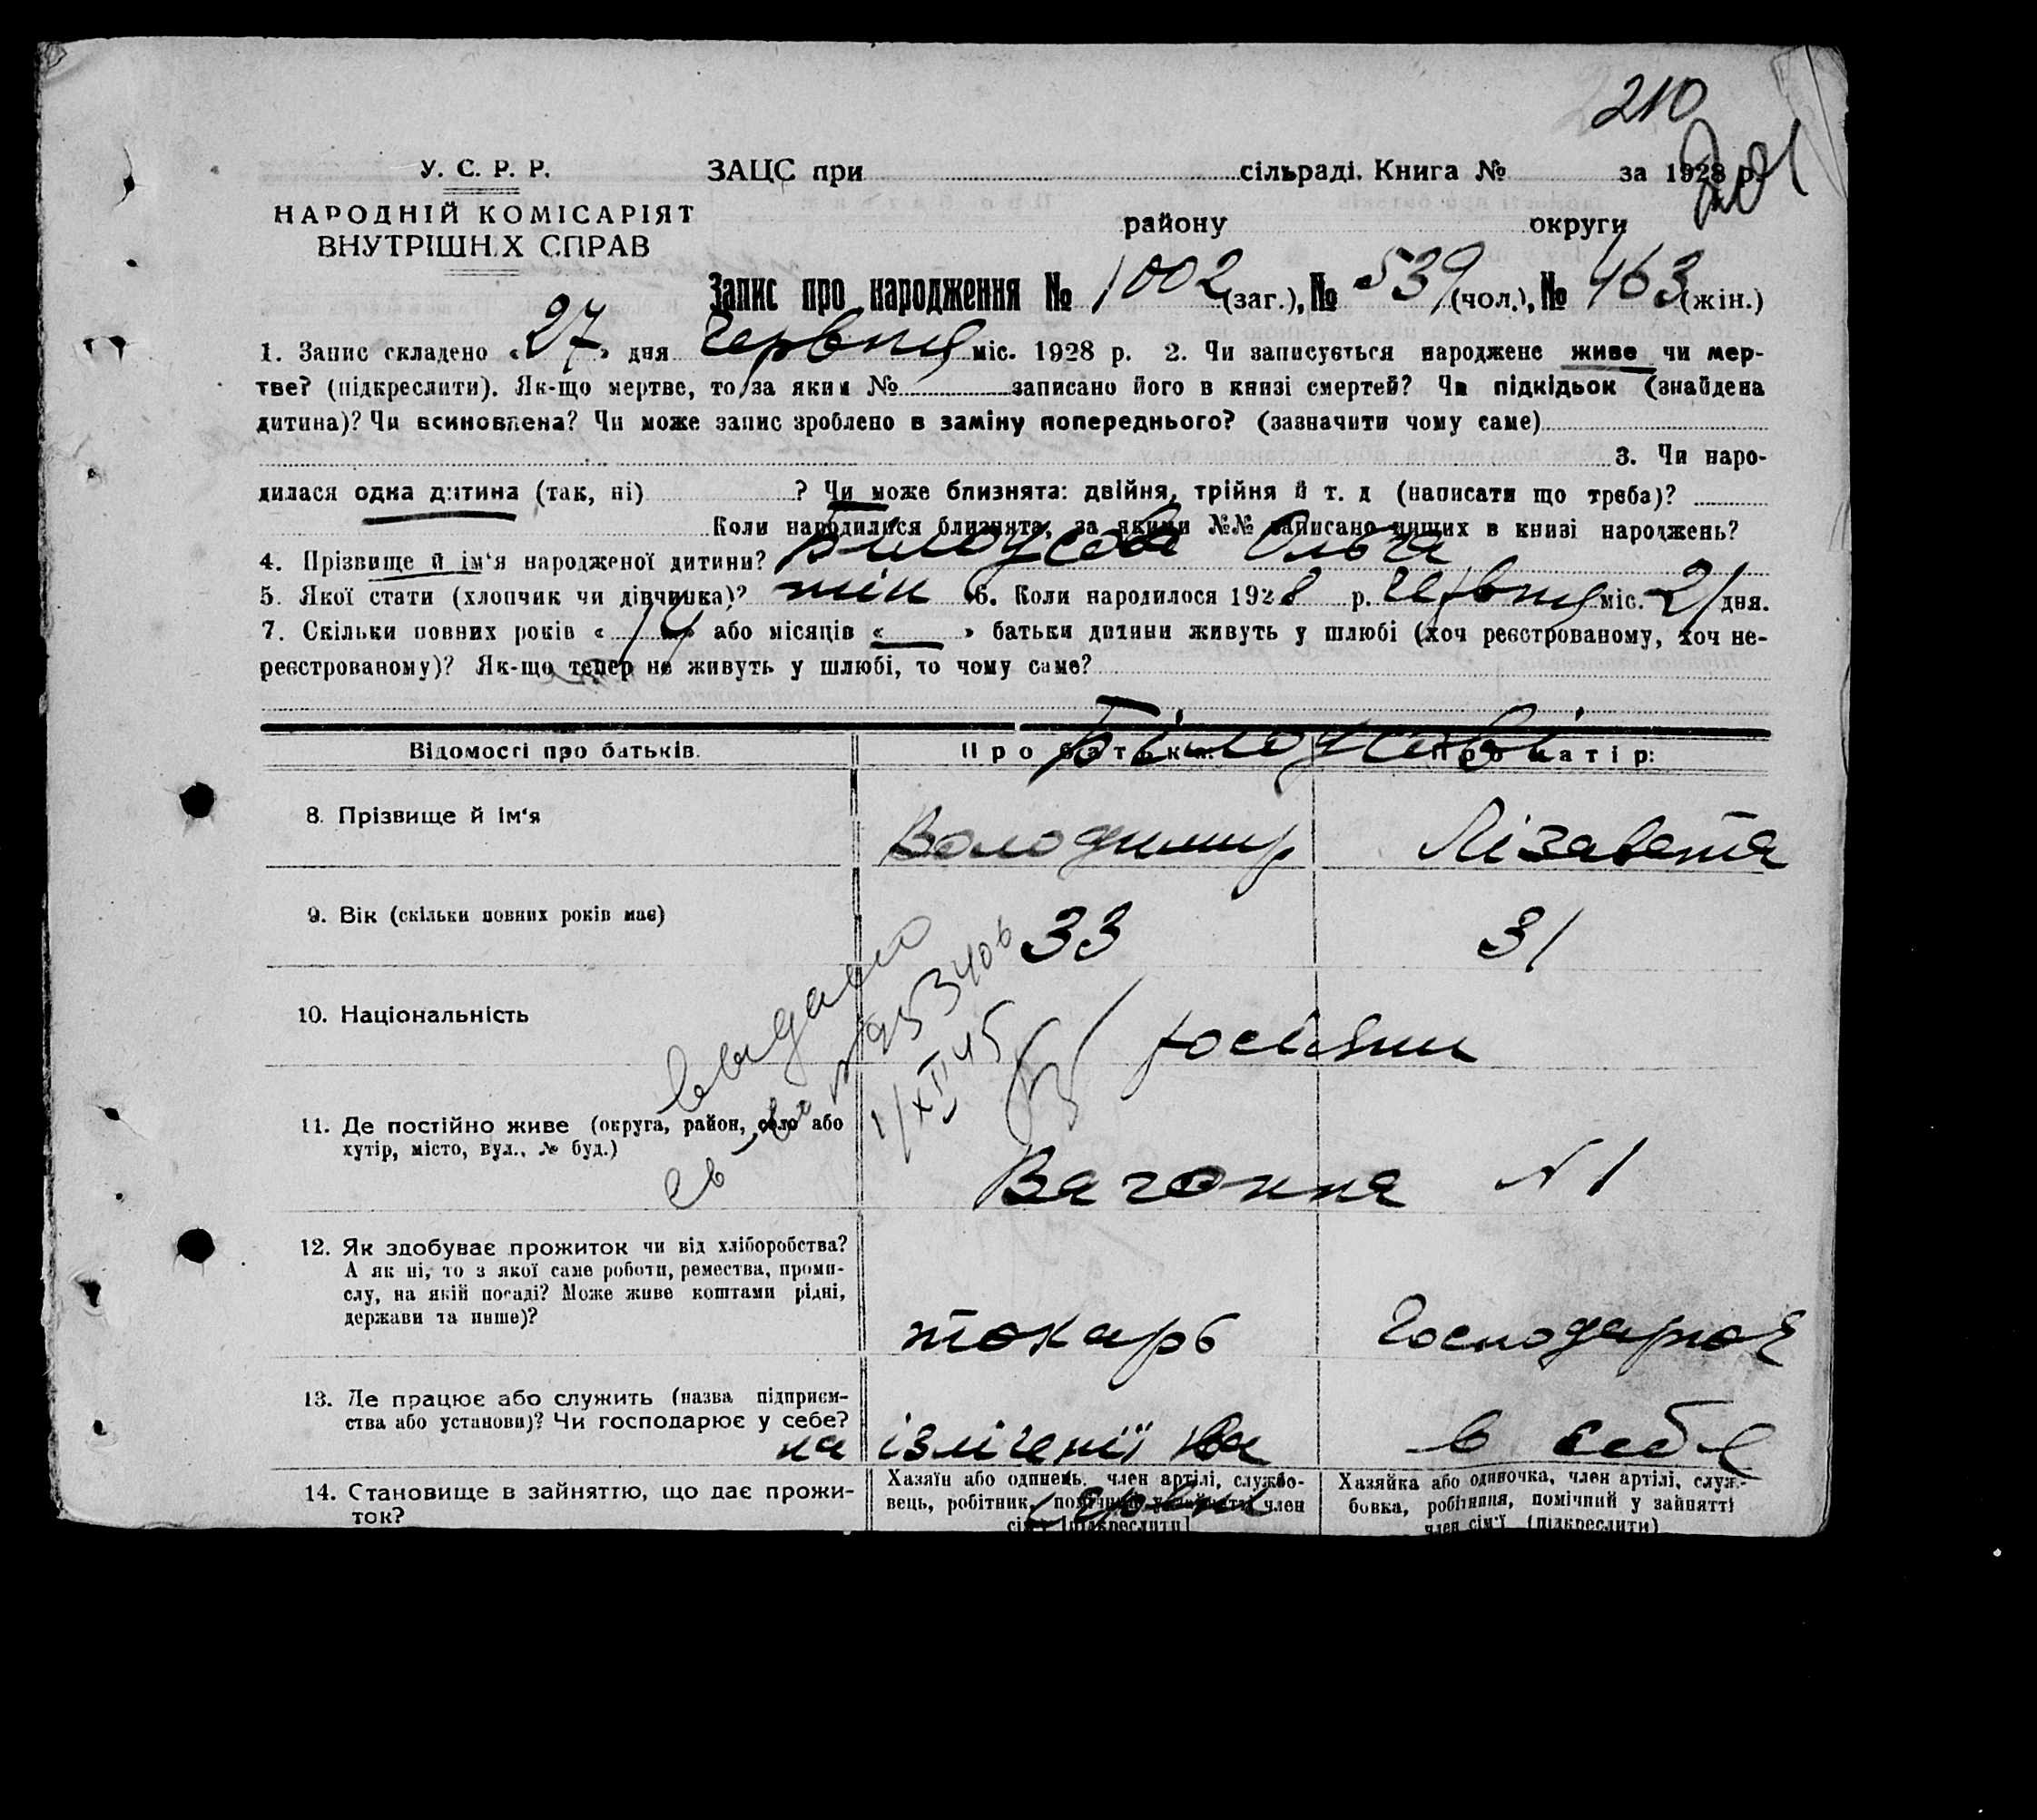 210
201
У. С. Р. Р.
НАРОДНІЙ КОМІСАРІЯТ
ВНУТРІШНІХ СПРАВ
ЗАЦС при сільраді. Книга № за 1928 р.
району округи
Запис про народження № 1002 (заг.), № 539 (чол.), № 463 (жін.)
1. Запис складено «27» дня Червня міс. 1928 р. 2. Чи записується народжене живе чи мер-
тве? (підкреслити). Як-що мертве, то за яким № записано його в книзі смертей? Чи підкідьок (знайдена
дитина)? Чи всиновлена? Чи може запис зроблено в заміну попереднього? (зазначити чому саме)
3. Чи наро-
дилася одна дитина (так, ні) ? Чи може близнята: двійня, трійня й т. д (написати що треба)?
Коли народилися близнята, за якими №№ записано инших в книзі народжень?
4. Прізвище й ім‘я народженої дитини? Білоусова Ольга
5. Якої стати (хлопчик чи дівчинка)? жін 6. Коли народилося 1928 р. Червня міс. 21 дня.
7. Скільки повних років «14» або місяців « — » батьки дитини живуть у шлюбі (хоч реєстрованому, хоч не-
реєстрованому)? Як-що тепер не живуть у шлюбі, то чому саме?
Відомості про батьків. Про батька: Про матір:
Білоусові
8. Прізвище й ім‘я Володимир Лізавета
9. Вік (скільки повних років має) 33 31
10. Національність росіяни
видано
св-во
1/XII 45
11. Де постійно живе (округа, район, село або
хутір, місто, вул., № буд.)
Вагонна N 1
12. Як здобуває прожиток чи від хліборобства?
А як ні, то з якої саме роботи, ремества, проми-
слу, на якій посаді? Може живе коштами рідні,
держави та инше)?
токарь Господарює
13. Де працює або служить (назва підприєм-
ства або установи)? Чи господарює у себе?
на в себе
14. Становище в зайняттю, що дає прожи-
ток?
Хазяїн або одинець, член артілі, службо-
вець, робітник, помічний у зайнятті член
сім'ї [підкреслити]
Хазяйка або одиночка, член артілі, служ-
бовка, робітниця, помічний у зайнятті
член сім'ї (підкреслити)